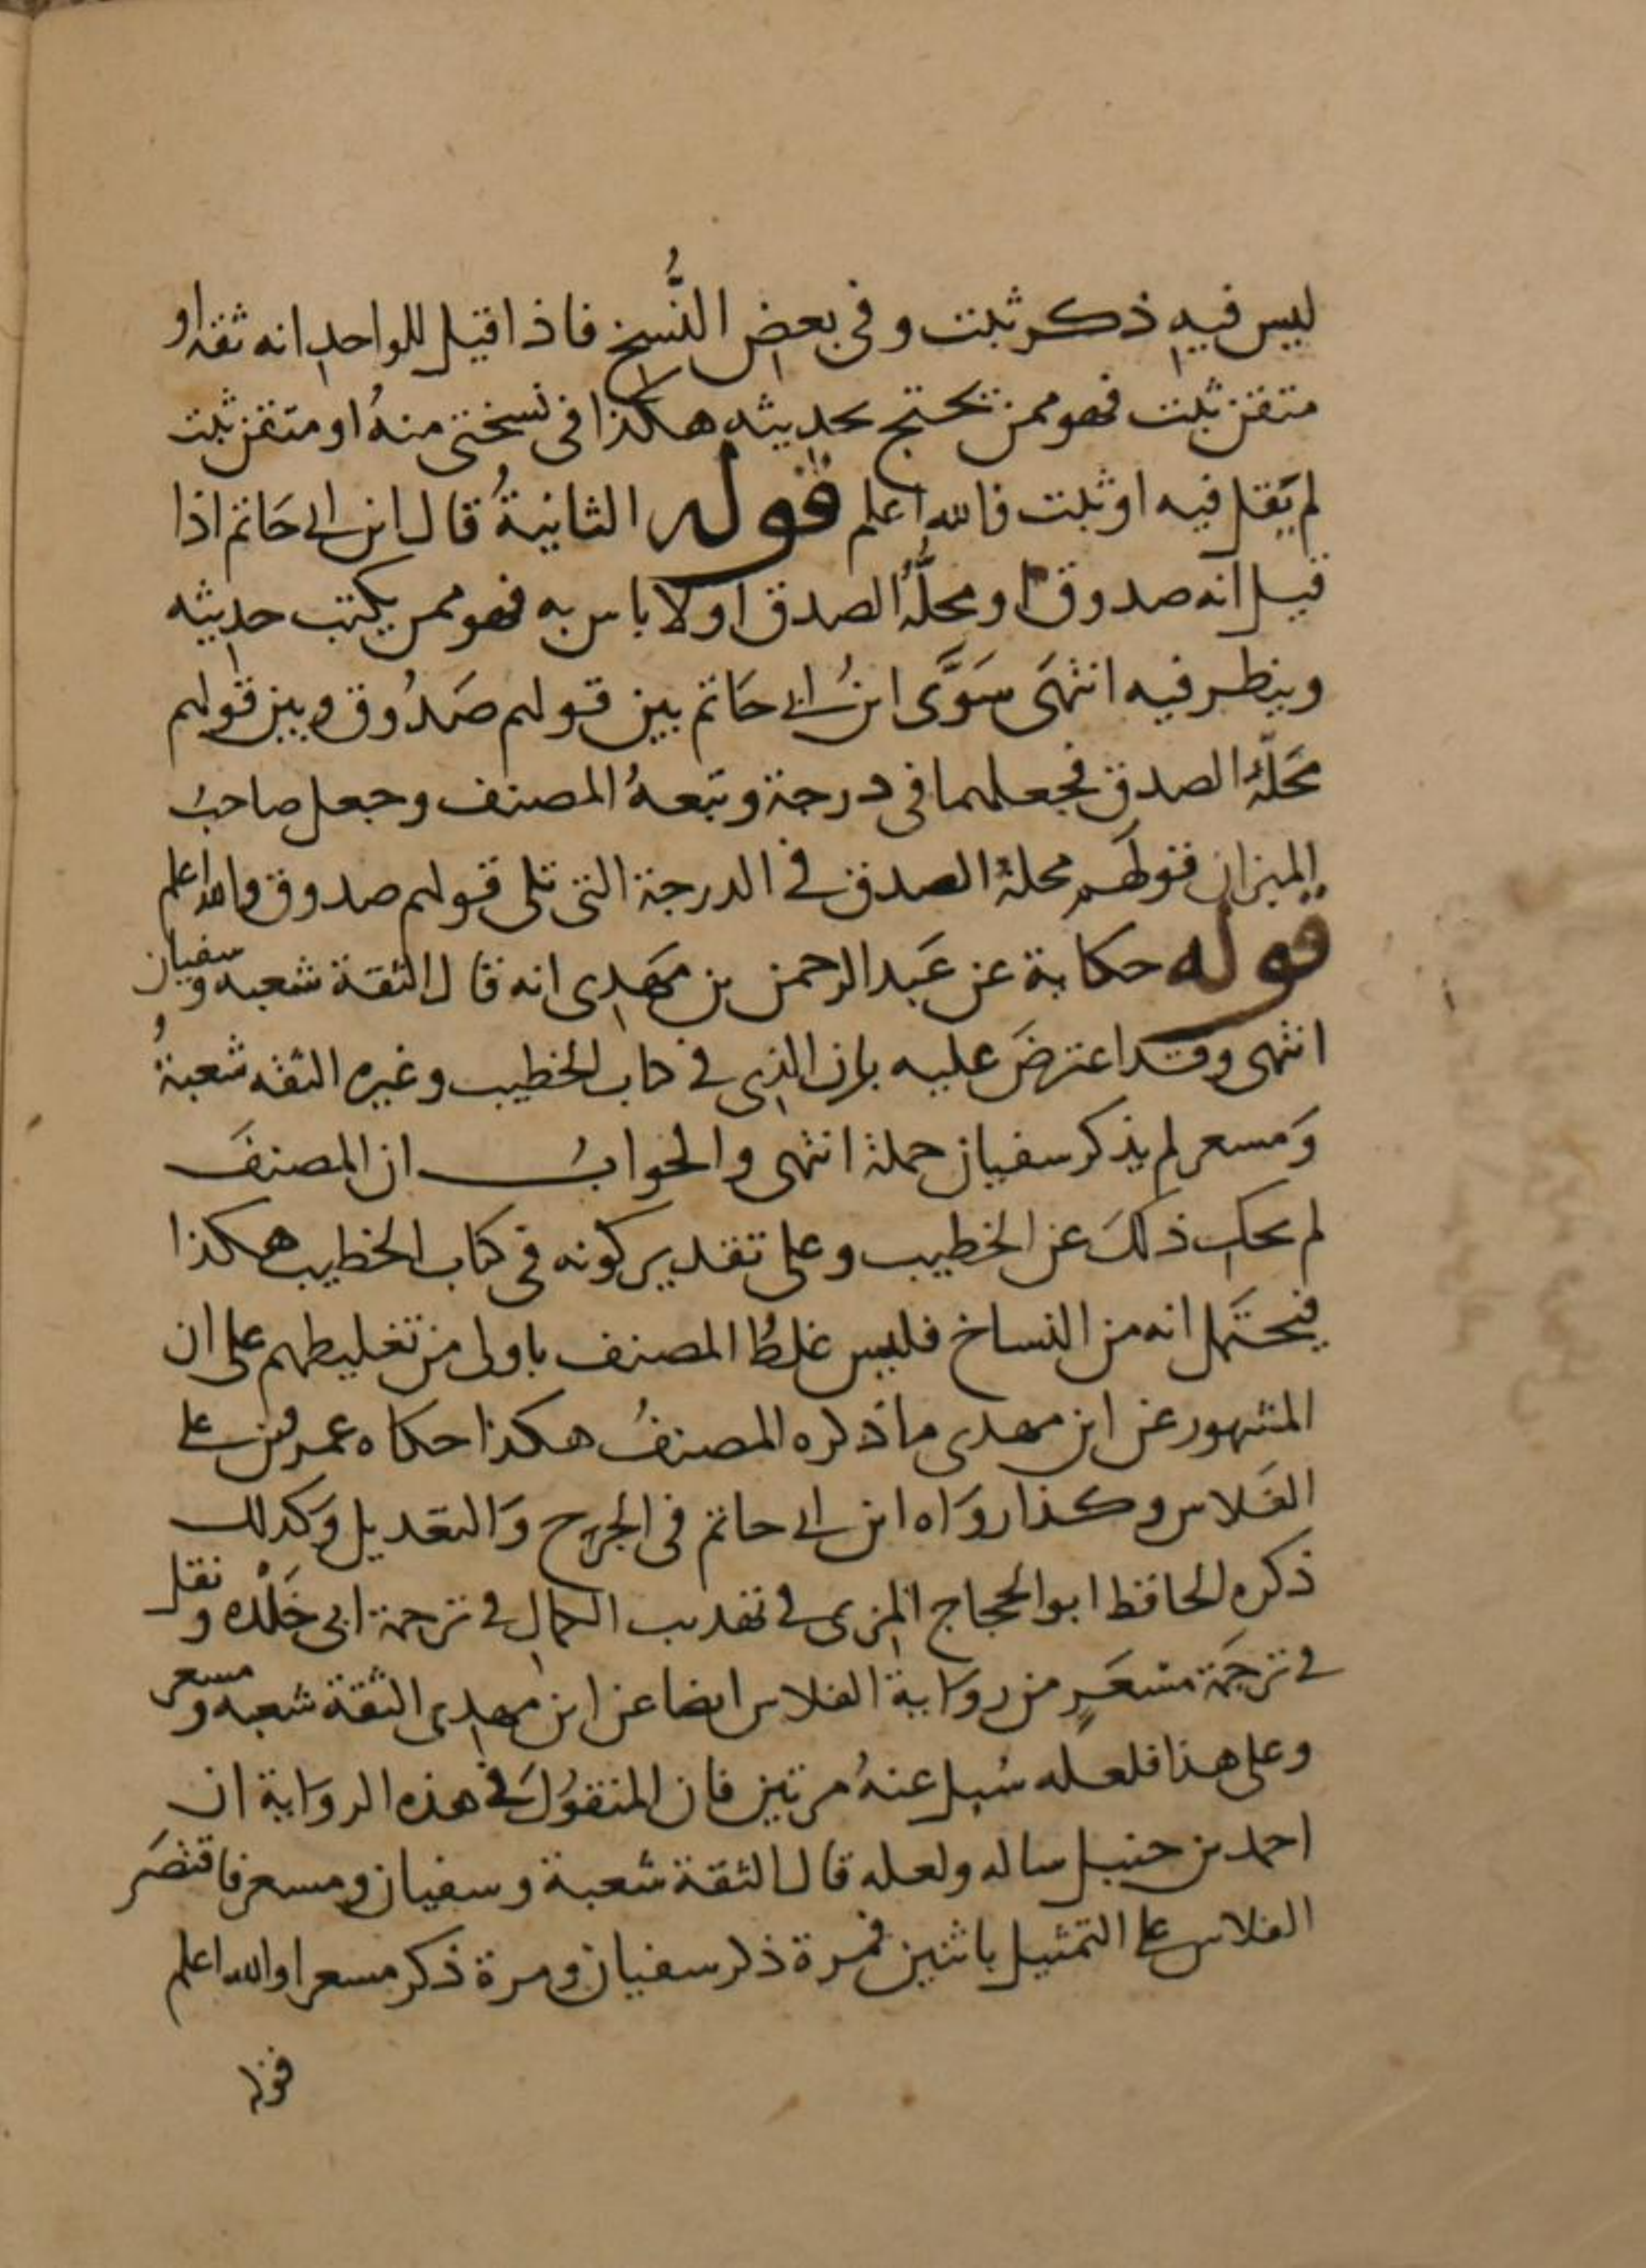 ليس فيه ذكر ثبت وفي بعض النُّسخ فاذا قيل للواحد انه ثقة او
متقن ثبت فهو ممن يحتج بحديثه هكذا في نسختي منهُ او متقن ثبت
لم يَقل فيه او ثبت فالله اعلم قوله الثانيةُ قال ابن ابي حَاتم اذا
قيل انه صدوق او محلُّهُ الصدق او لا باس به فهو ممن يكتب حديثه
وينظر فيه انتهَى سَوَّى ابنُ ابي حَاتم بين قولهم صَدُوق وبين قولهم
مَحَلّهُ الصدق فجعلهما في درجة وتبعهُ المصنف وجعل صاحبُ
الميزان قولَهم محلهُ الصدق في الدرجة التي تلي قولهم صدوق والله اعلم
قوله حكاية عن عَبد الرحمن بن مَهدي انه قال الثقة شعبه وسفيان
انتهى وقد اعترضَ عليه بان الذي في كتاب الخطيب وغيره الثقه شعبةُ
وَمسعر لم يذكر سفيان جملة انتهى والجوابُ ان المصنفَ
لم يحك ذلكَ عن الخطيب وعلى تقدير كونه في كتاب الخطيب هكذا
فيحتمَل انه من النساخ فليس غلطُ المصنف باولى من تغليطهم على ان
المشهور عن ابن مهدي ما ذكره المصنفُ هكذا حكاه عمرو بن علي
الفَلاس وكذا روَاه ابن ابي حاتم في الجرح وَالتعديل وَكذلك
ذكره الحافظ ابو الحجاج المزي في تهذيب الكمال في ترجمة ابي خَلْده ونقل
في ترجَمة مسْعَرٍ من روَاية الفلاس ايضا عن ابن مهدي الثقة شعبه ومسعر
وعلى هذا فلعله سُيل عنهُ مرتين فان المنقوُلَ في هذه الروَاية ان
احمد بن حنبل ساله ولعله قال الثقة شعبة وسفيان ومسعر فاقتصَر
الفلاس على التمثيل باثنين فمرة ذكر سفيان ومرة ذكر مسعرا والله اعلم
قوله